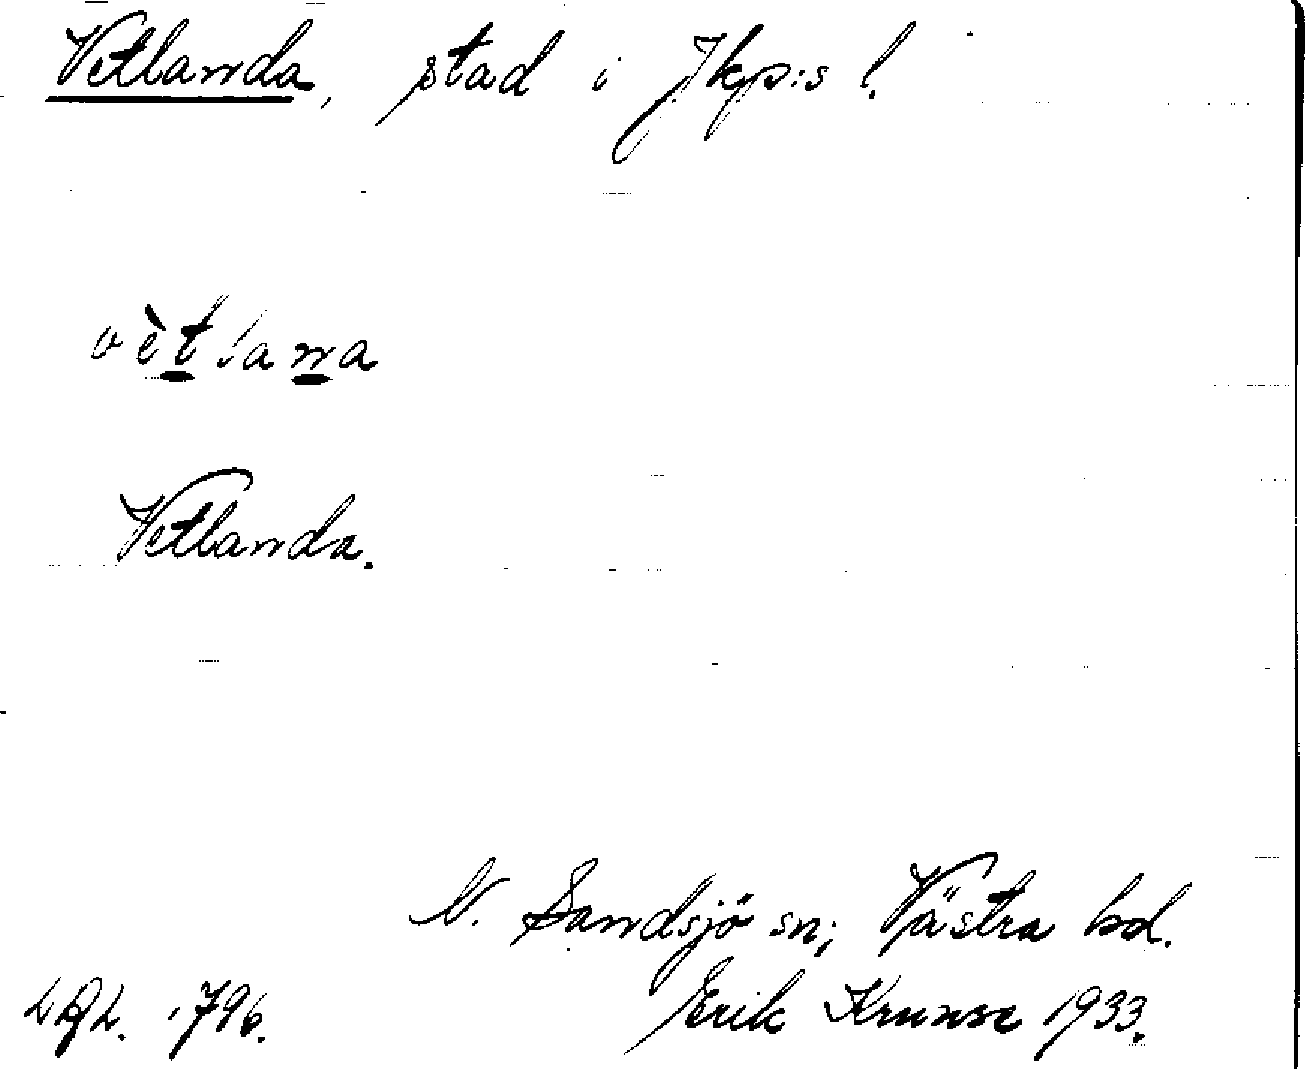 Vetlanda, stad i Jkp:s l.
vètlana
Vetlanda.
N. Sandsjö sn; Västra hd.
Erik Krunse 1933.
1796.